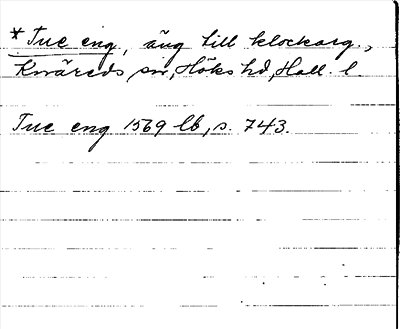 * Tue eng, äng till klockarg.,
Knäreds sn, Höks hd, Hall. l.
Tue eng 1569 lb, s. 743.